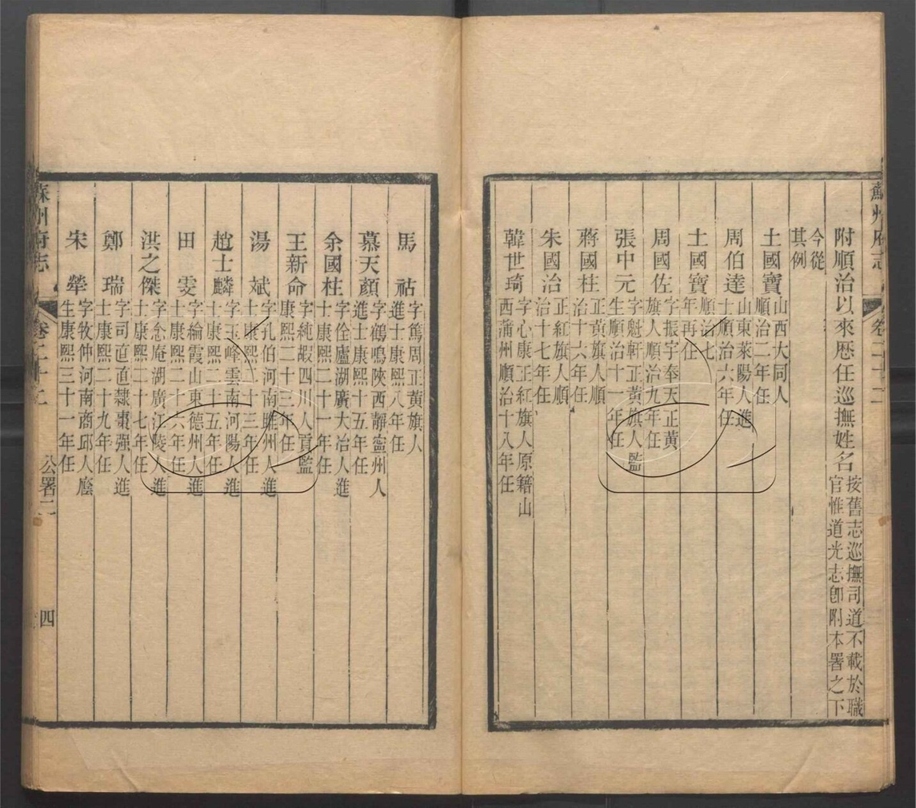 蘇州府志
卷二十二
附順治以來歷任巡撫姓名按舊志巡撫司道不載於職
官惟道光志卽附本署之下
今從
其例
土國寶山西大同人
順治二年任
周伯達山東萊陽人進
士順治六年任
土國寶順治七
年再任
周國佐字振宇奉天正黃
旗人順治九年任
張中元字魁軒正黃旗人監
生順治十一年任
蔣國柱正黃旗人順
治十六年任
朱國治正紅旗人順
治十七年任
韓世琦字心康正紅旗人原籍山
西蒲州順治十八年任
馬祜字篤周正黃旗人
進士康熙八年任
慕天顏字鶴鳴陝西靜寧州人
進士康熙十五年任
余國柱字佺廬湖廣大冶人進
士康熙二十一年任
王新命字純嘏四川人貢監
康熙二十三年任
湯斌字孔伯河南睢州人進
士康熙二十三年任
趙士麟字玉峰雲南河陽人進
士康熙二十五年任
田雯字綸霞山東德州人進
士康熙二十六年任
洪之傑字念庵湖廣江陵人進
士康熙二十七年任
鄭瑞字司直直隸棗强人進
士康熙二十九年任
宋犖字牧仲河南商邱人廕
生康熙三十一年任
蘇州府志
卷二十二
公署二
四